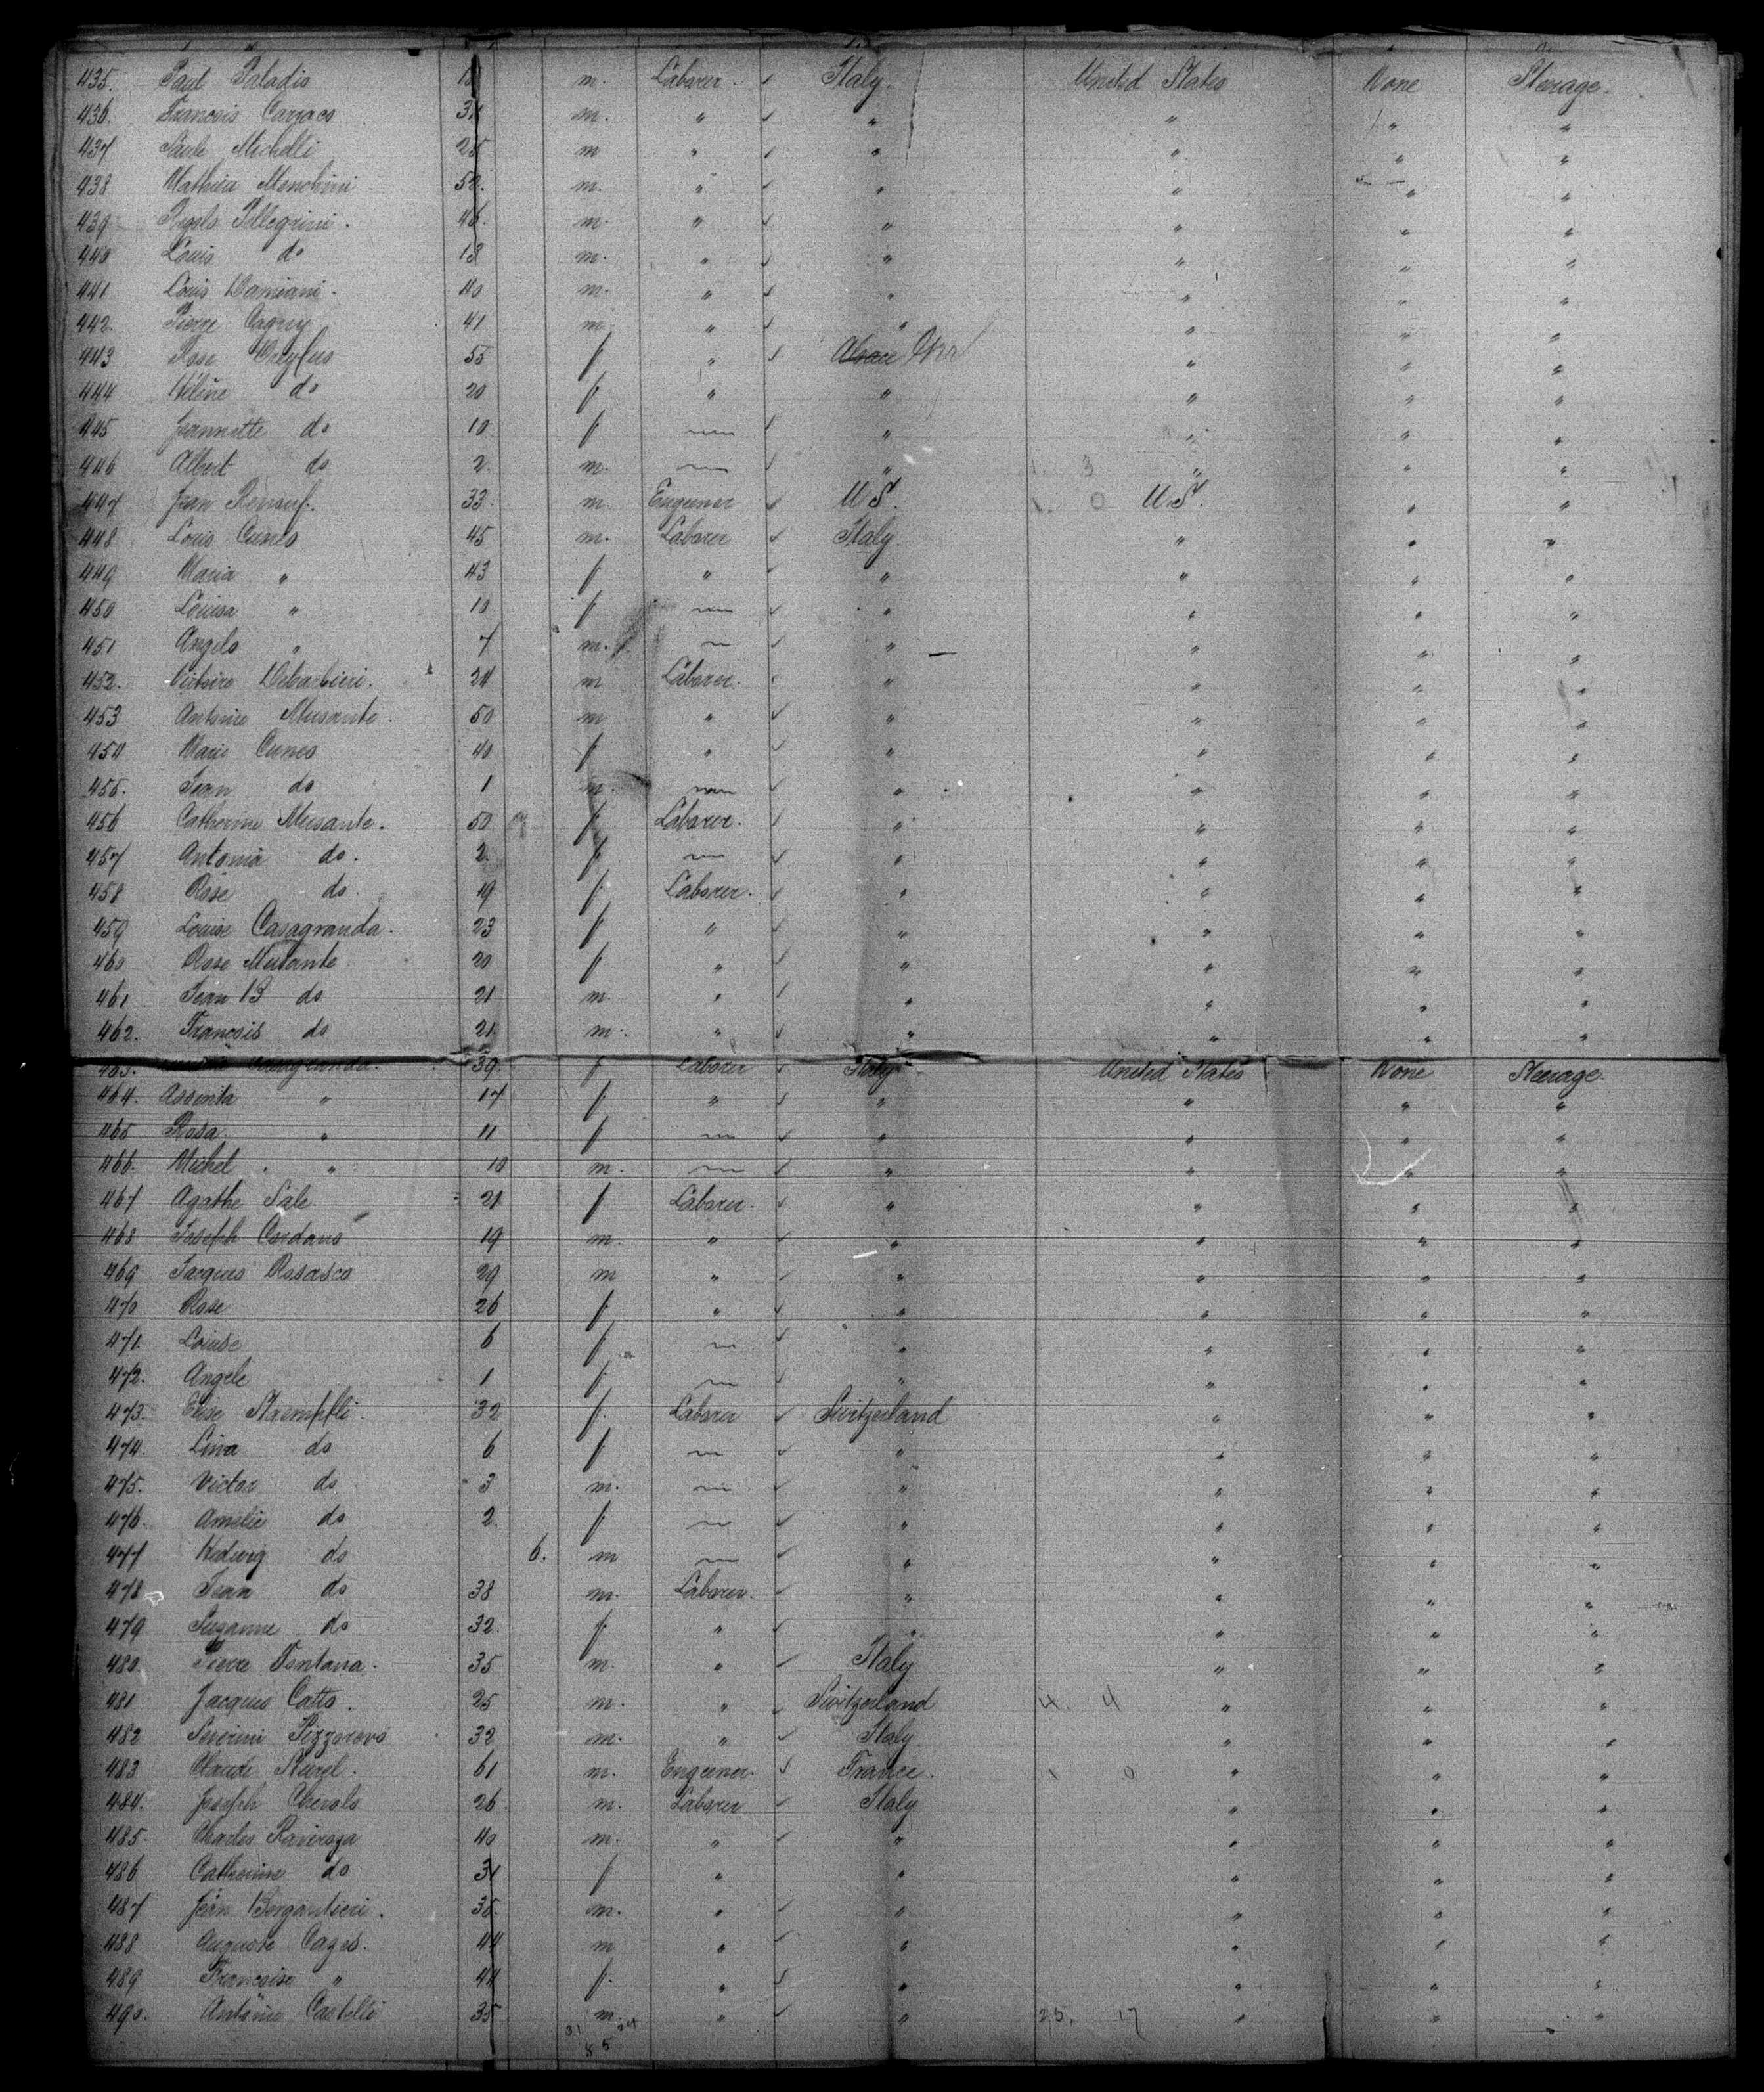 435. Paul Paladis m. Laborer. ✓ Italy. United States None Steerage.
436. Francois Carzaco 31 m. " ✓ " " " "
437 Paule Michelli 25 m " ✓ " " " "
438 Mathieu Menchini 52. m. " ✓ " " " "
439 Pellegrini. 46. m. " ✓ " " " "
440 Louis do 13 m. " ✓ " " " "
441 Louis Damiani. 40 m. " ✓ " " " "
442. Pierre Cagny 41 m " ✓ " " " "
443 Rose Dreyfus 55 f " ✓ Alsace " " "
444 Hélène do 20 f " " " " "
445 Jeannette do 10 f — ✓ " " " "
446 Albert do 2. m. — ✓ " 3 " " "
447 Jean Renouf. 33. m. Engeener ✓ U S. 0 U.S. " "
448 Louis Cuneo 45 m. Laborer ✓ Italy. " " "
449 Maria " 43 f " ✓ " " " "
450 Louisa " 10 f — ✓ " " " "
451 Angelo " 7 m. — ✓ " " " "
452. Victoire Debarbieri. 24 m Laborer. ✓ " " " "
453 Antoine Musante. 50 m " ✓ " " " "
454 Marie Cuneo 40 f " ✓ " " " "
455. Jean do 1 m. — ✓ " " " "
456 Catherine Musante. 50 f Laborer. ✓ " " " "
457 Antonia do. 2. f — ✓ " " " "
458 Rose do. 19 f. Laborer. ✓ " " " "
459 Louise Casagranda. 23 f " ✓ " " " "
460 Rose Musante 20 f " ✓ " " " "
461 Jean B do 21 m. " ✓ " " " "
462. François do 21. m. " ✓ " " " "
463. Casagranda. 39. f Laborer ✓ Italy United States None Steerage.
464. Assunta " 17 f " ✓ " " " "
465 Rosa " 11 f — ✓ " " " "
466. Michel " 10 m. — ✓ " " " "
467 Agathe Sale. 21 f Laborer. ✓ " " " "
468 Joseph Cordano 19 m. " ✓ " " " "
469 Jacques Rosasco 29 m " ✓ " " " "
470 Rose 26 f " ✓ " " " "
471. Louise 6 f — ✓ " " " "
472. Angele 1 f. — ✓ " " " "
473. Elise Staempfli. 32 f. Laborer ✓ Switzerland " " "
474. Lina do 6 f — ✓ " " " "
475. Victor do 3 m. — ✓ " " " "
476. Amelie do 2 f — ✓ " " " "
477 Hedwig do 6. m — ✓ " " " "
478 Jean do 38 m. Laborer. ✓ " " " "
479 Suzanne do 32. f. " ✓ " " " "
480. Pierre Fontana. 35 m. " ✓ Italy " " "
481 Jacques Catto. 25 m. " ✓ Switzerland 4. 4 " " "
482 Severini 32 m. " ✓ Italy " " "
483 Claude 61 m. Engeener. ✓ France. 1 0 " " "
484. Joseph 26. m. Laborer ✓ Italy " " "
485. Charles Raviraza 40 m. " ✓ " " " "
486 Catherine do 31 f " " " " "
487 Jean Bergantieri. 38. m. " ✓ " " " "
488 Auguste Cages. 44 m " ✓ " " " "
489 Francoise " 44 f. " ✓ " " " "
490. Antonio Castelli 35 m. " ✓ " 25. 17 " " "
31 24
55